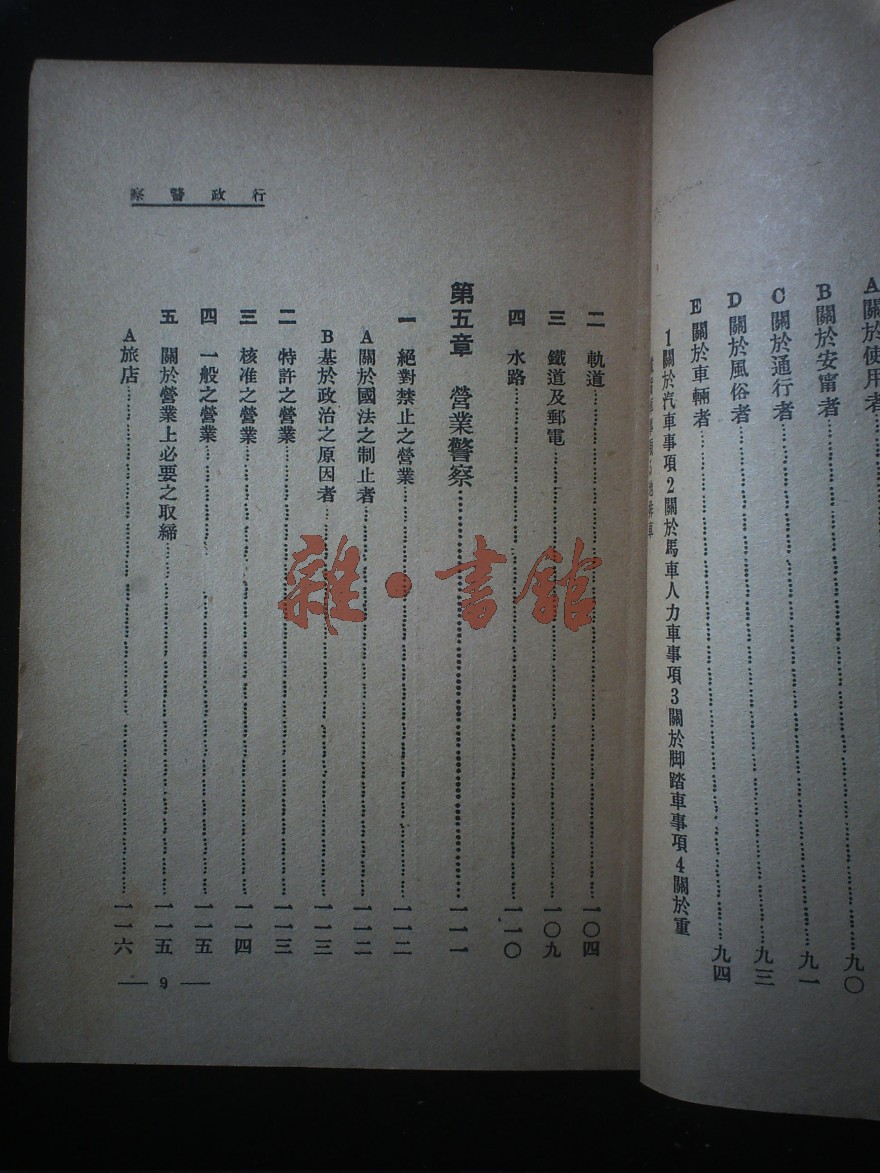 A關於使用者
B關於安甯者……九〇
C關於通行者……九一
D關於風俗者……九三
E關於車輛者……九四
1關於汽車事項2關於馬車人力車事項3關於脚踏車事項4關於重
行政警察
二 軌道……一〇四
三 鐵道及郵電……一〇九
四 水路……一一〇
第五章 營業警察……一一一
一 絕對禁止之營業……一一二
A關於國法之制止者……一一二
B基於政治之原因者……一一三
二 特許之營業……一一三
三 核准之營業……一一四
四 一般之營業……一一五
五 關於營業上必要之取締……一一五
A旅店……一一六
— 9 —
雜·書館